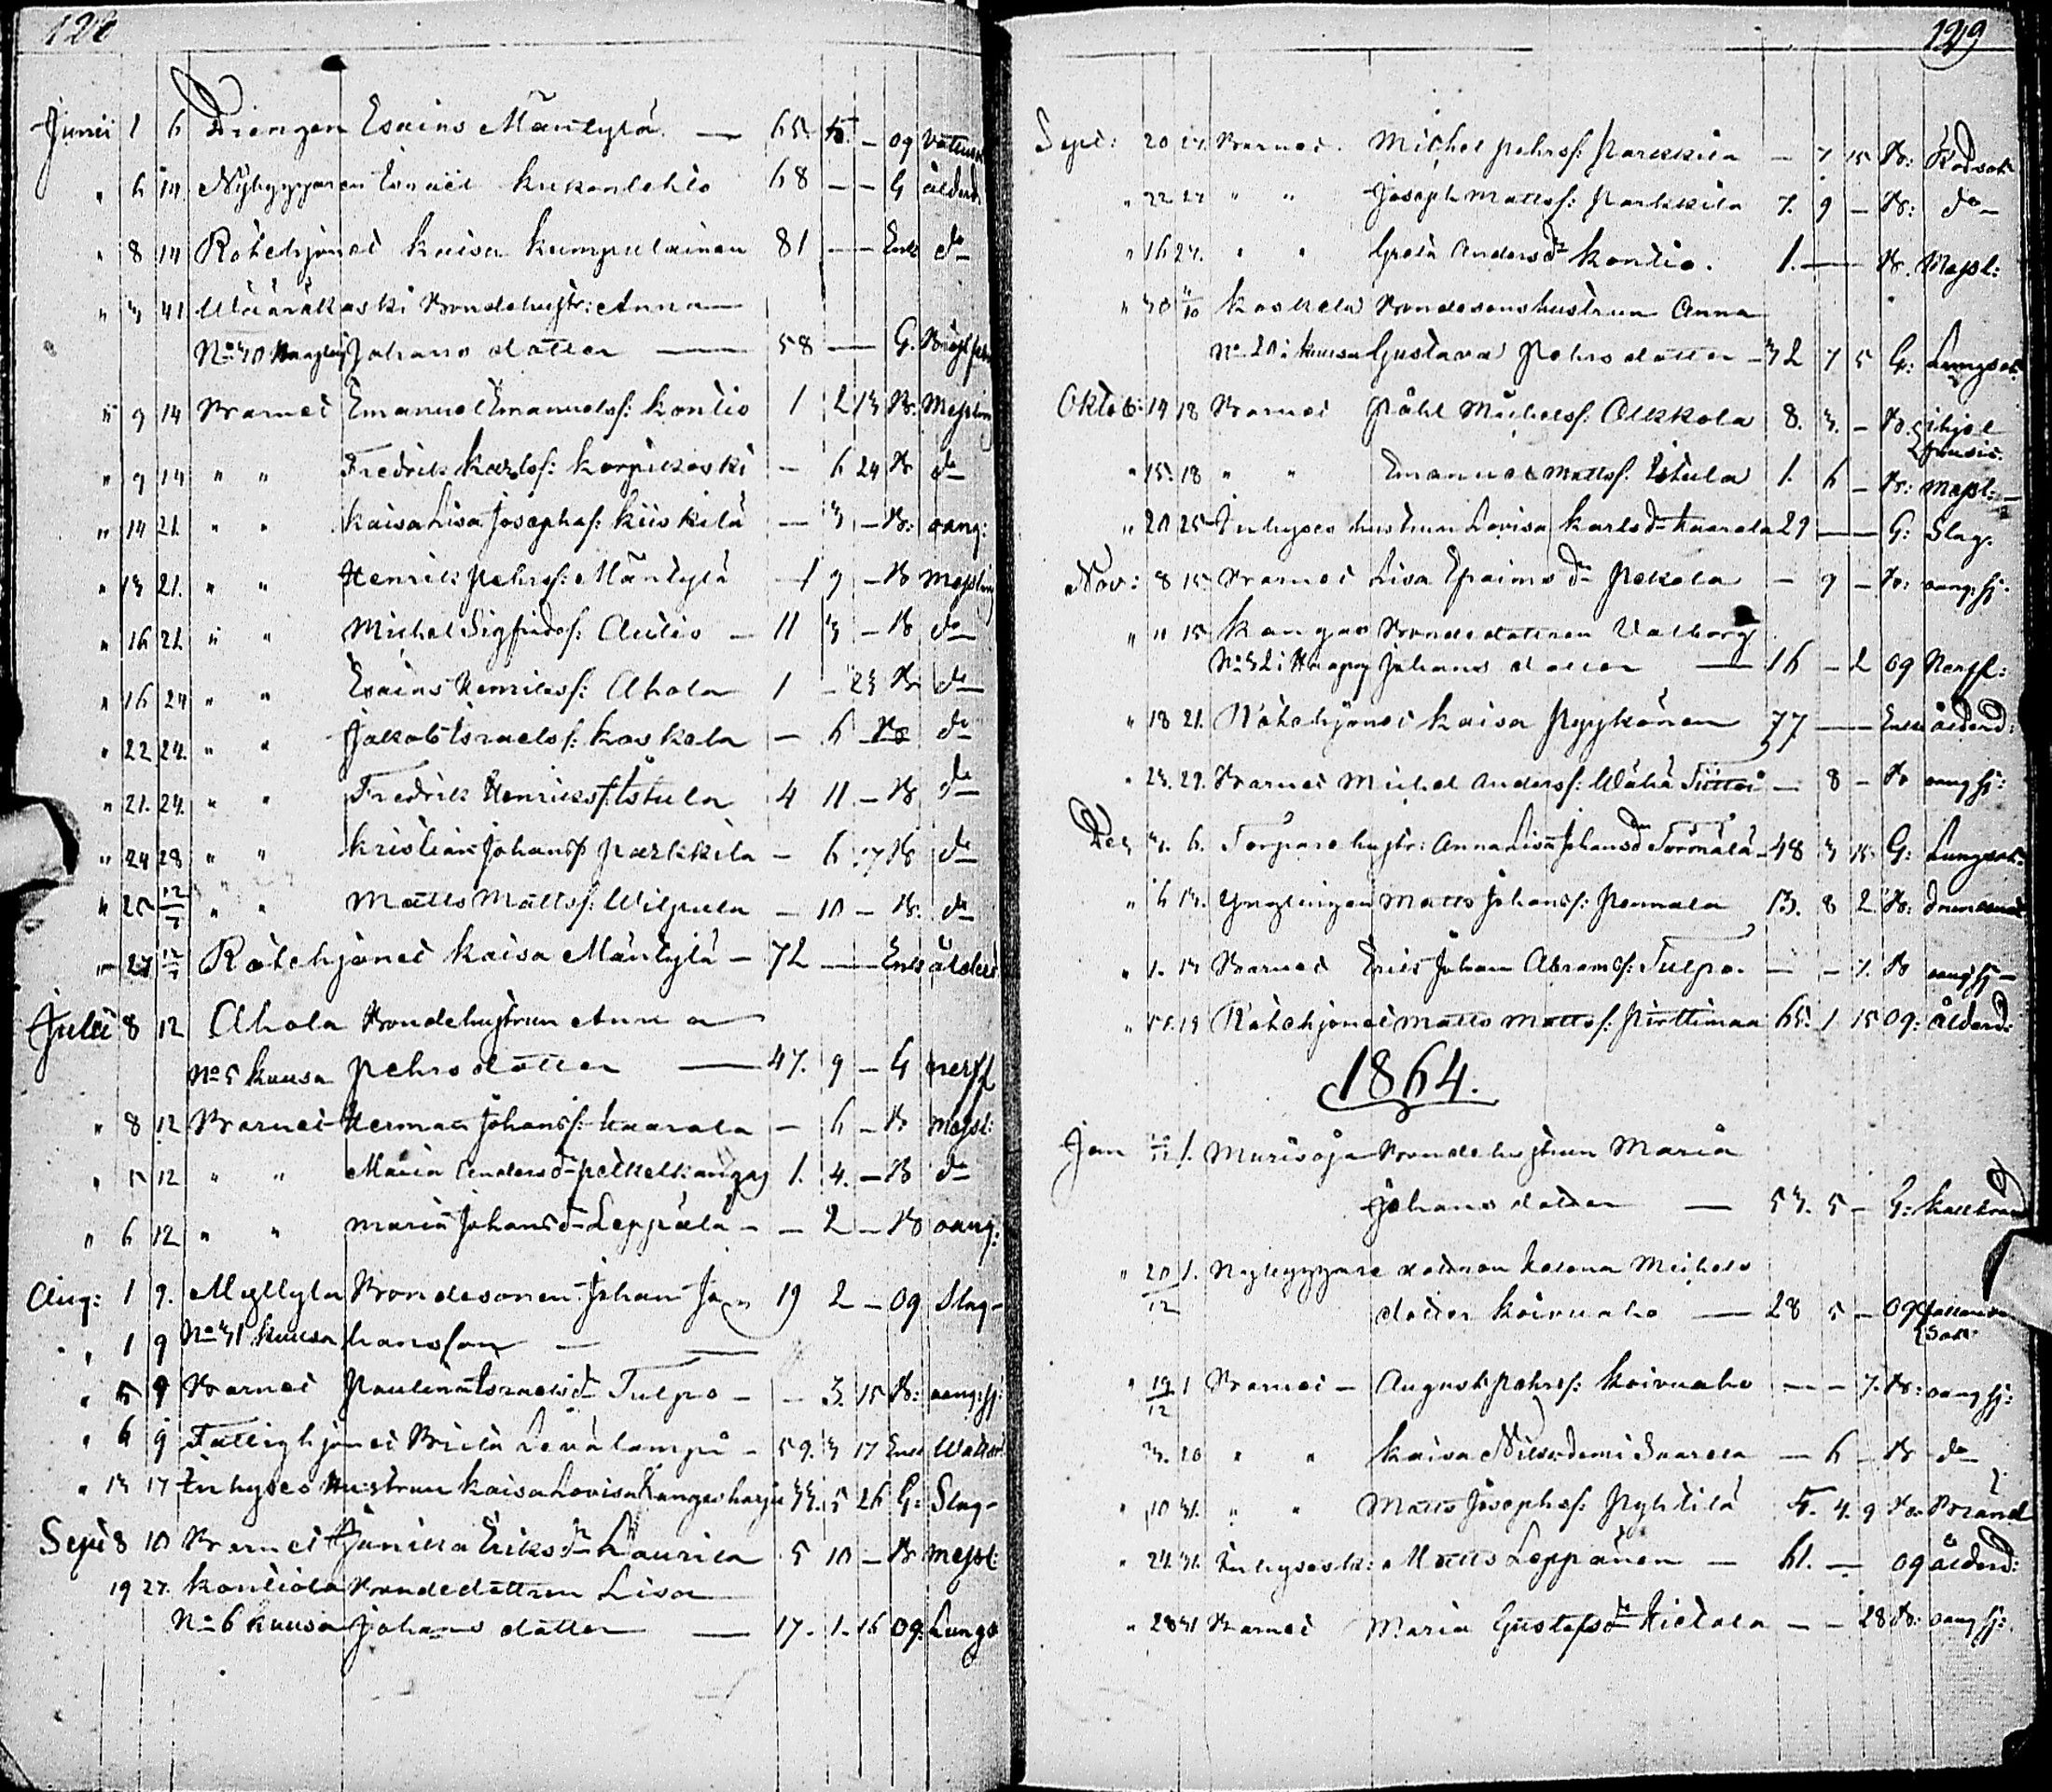 128
Junii 1 6 Drengen Esaias Mäntylä — 65. 5. — og vattusot
" 6 14 Nybyggaren Israel Kukonlehto 68 — — G ålderd.
" 8 14 Rotehjonet Kaisa Kumpulainen 81 — — Enk do
" 3 41 Määräkoski Bondehustr: Anna
No 30 Haapajj Johans dotter — 58 — G.
" 9 14 Barnet Emanuel Emanuelss: Kontio 1 2 13 B. Messling
" 9 14 " " Fredrik Karlss: Korpikoski — 6 24 B do
" 14 21. " " Kaisa Lisa Josephs: Kiiskilä — 3 — B: oang:
" 13 21. " " Henrik Pehrss: Mäntylä — 1 9 — B Messling
" 16 21 " " Michel Sigfridss: Autio — 11 3 — B do
" 16 24 " " Esaias Henrikss: Ahola 1 — 23 B do
" 22 24. " " Jakob Israelss: Koskela — 6 — B do
" 21. 24. " " Fredrik Henrikss: Istula 4 11. — B do
" 24 28 " " Kristian Johanss Parkkila — 6 17 B do
" 25 12/7 " " Matts Mattss: Wilpula — 10 — B. do
" 27 12/7 Rotehjonet Kaisa Mäntylä — 72 — — Enk ålderd
Julii 8 12 Ahola Bondehustrun Anna
No 5 Kuusa Pehrs dotter — 47. 9 — G nerff
" 8 12 Barnet Herman Johanss: Kaarala — 6 — B Messl:
" 5 12 " " Maria Andersdr Petkelkangas 1. 4. — B do
" 6 12 " " Maria Johansdr Leppälä — — 2 — B oang:
Aug: 1 9. Myllylä Bondesonen Johan Jo= 19 2 — og Slag-
" 1 9 No 31 Kuusa hansson —
" 5 9 Barnet Paulina Israelsdr Tulpo — — 3. 15 B: oang:sj:
" 6 9 Fattighjonet Brita Levälampi — 59. 3 17 Enk
" 13 17 Inhyses Hustrun Kaisa Lovisa Kangasharju 33. 5 26 G: Slag-
Sept 8 10 Barnet Janika Eriksdr Laurila 5 10 — B Messl:
19 27. Kontiola Bondedottren Lisa
No 6 Kuusa Johans dotter — 17. 1. 16 Og: Lungs
129
Sept: 20 27. Barnet. Michel Pehrss: Parkkila — 7 15 B: Rödsot
" 22 27 " " Joseph Mattss: Parkkila 7. 9 — B: do
" 16 27. " " Greta Andersdr Kontio. 1. — — B. Messl:
" 30 4/10 Koskela Bondesonshustrun Anna
No 20 i Kuusa Gustava Pehrs dotter — 32 7 5 G: Lungsot.
Oktob: 14 18 Barnet Påhl Michelss: Alkkola 8. 3. — B. ihjel
" 15. 18 " " Emanuel Mattss. Istula 1. 6 — B: Messl: —
" 20 25 Inhyses hustrun Lovisa Karlsdr Kaarala 29 — — G: Slag.
Nov: 8 15 Barnet Lisa Efraimsdr Pekola — 9 — B: oang:sj:
" " 15 Kangas Bondedottren Valborg
No 32 i Haapajj Johans dotter — 16 — 2 og Nerff:
" 18 21. Rotehjonet Kaisa Pyykönen 77 — — Enka ålderd:
" 23. 29. Barnet Michel Anderss: Wähä Tiitto — 8 — B oang sj:
Dec 3. 6. Torpare hustr: Anna Lisa Johansdr Törmälä — 48 3 15. G: Lungsot.
" 6 13. Ynglingen Matts Johanss: Pennala 13. 8 2. B:
" 1. 13 Barnet Eric Johan Abramss: Tulpo. — — 7. B oang sj —
" 15. 19 Rotehjonet Matts Mattss: Pirttimaa 65. 1 15 Og: Ålderd:
1864.
Jan 1. Mursoja Bondehustrun Maria
Johans dotter — 53. 5 — G: Kallbrand
" 20/12 1. Nybyggare dottren Helena Michels
dotter Koivuaho — 28 5 — Og
" 19/12 1 Barnet — August Pehrss: Koivuaho — — 7. B: oang sj:
" 3. 10 " " Kaisa Nikodemi Saarela — 6 — B do
" 10 31. " " Matts Josephss: Pyhtilä 5. 4. 9 B: Bränd
" 24. 31. Inhysesk: Matts Leppänen — 61. — Og ålderd:
" 28 31 Barnet Maria Gustafsdr Hietala — — 28 B: oang sj: